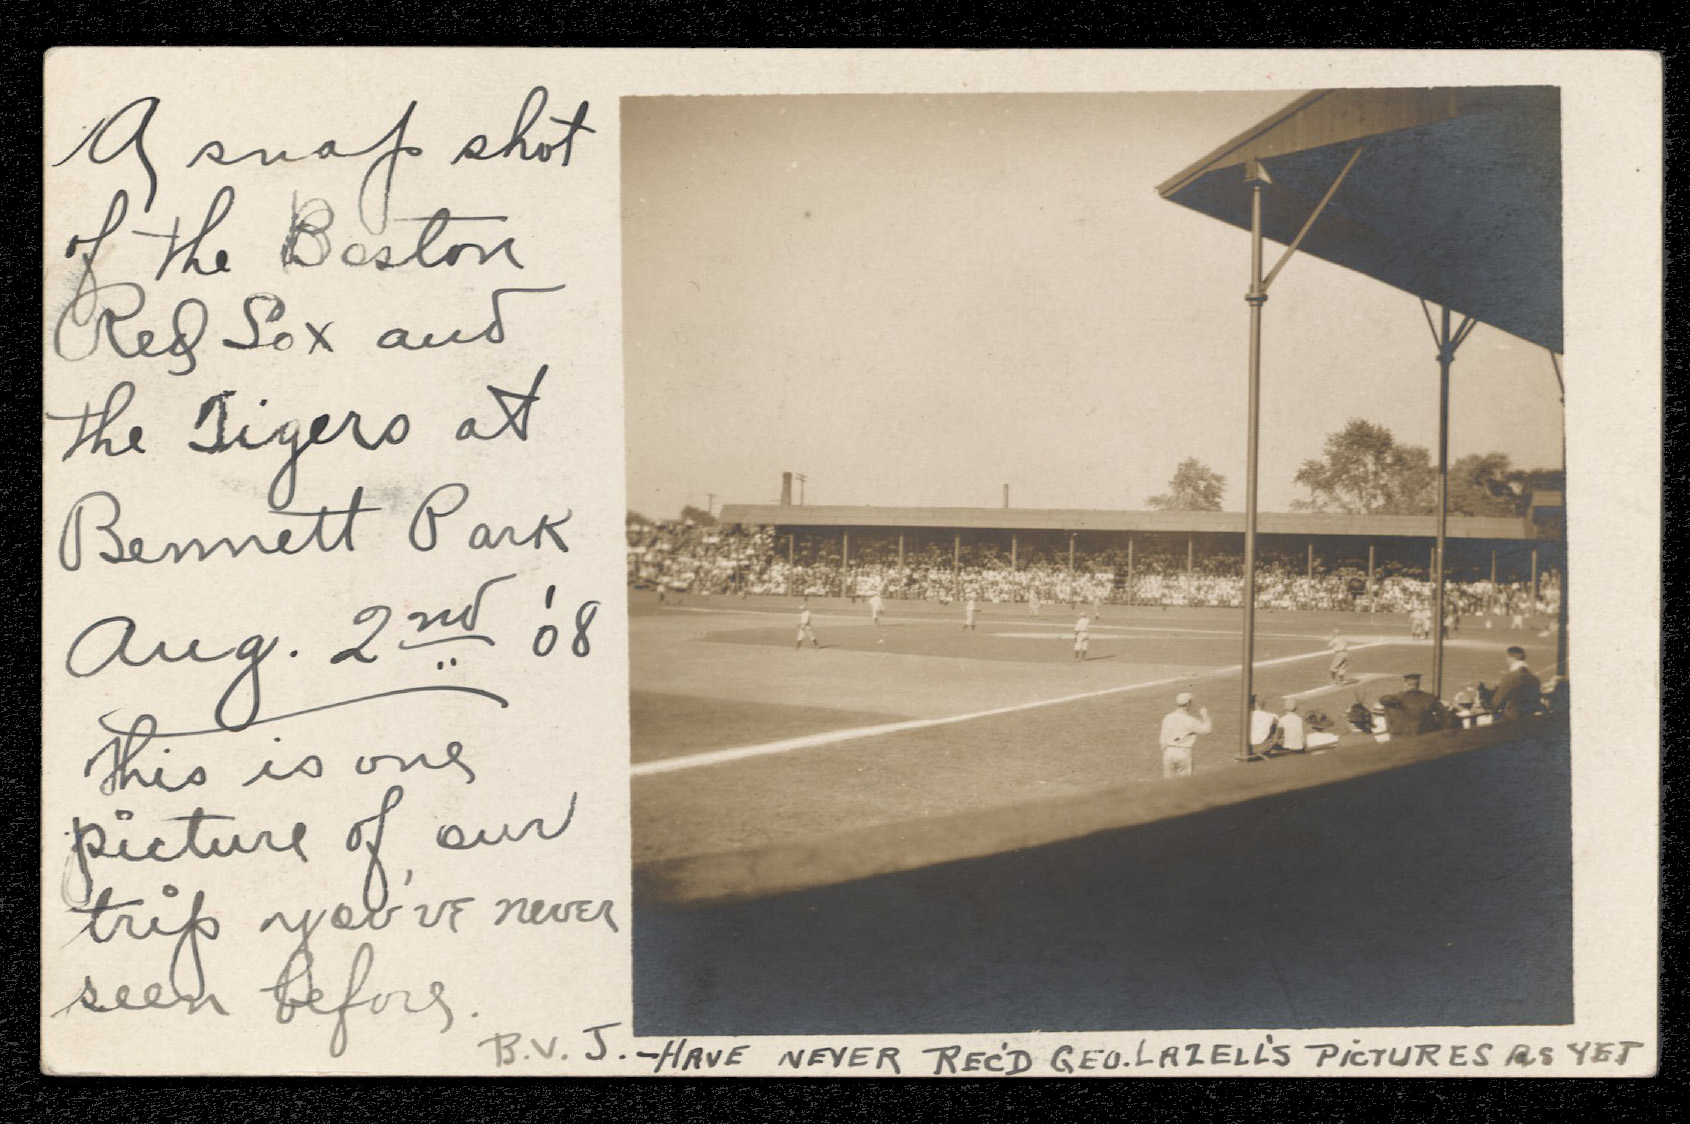 A snap shot
of the Boston
Red Sox and
the Tigers at
Bennett Park
Aug. 2nd '08
This is one
picture of our
trip you've never
seen before.
B.V.J. - HAVE NEVER REC'D GEO. LAZELL'S PICTURES AS YET